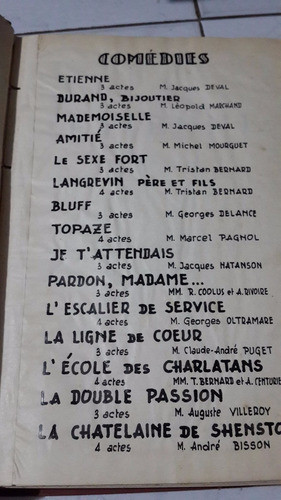 COMÉDIES
ETIENNE
3 actes M. Jacques DEVAL
DURAND, BIJOUTIER
3 actes M. Léopold MARCHAND
MADEMOISELLE
3 actes M. Jacques DEVAL
AMITIÉ
3 actes M. Michel MOURGUET
LE SEXE FORT
3 actes M. Tristan BERNARD
LANGREVIN PÈRE ET FILS
4 actes M. Tristan BERNARD
BLUFF
3 actes M. Georges DELANCE
TOPAZE
4 actes M. Marcel PAGNOL
JE T'ATTENDAIS
3 actes M. Jacques NATANSON
PARDON, MADAME...
3 actes MM. R. COOLUS et A. RIVOIRE
L'ESCALIER DE SERVICE
4 actes M. Georges OLTRAMARE
LA LIGNE DE COEUR
3 actes M. Claude-André PUGET
L'ÉCOLE DES CHARLATANS
4 actes MM. T. BERNARD et A. CENTURIE
LA DOUBLE PASSION
3 actes M. Auguste VILLEROY
LA CHATELAINE DE SHENSTO
4 actes M. André BISSON